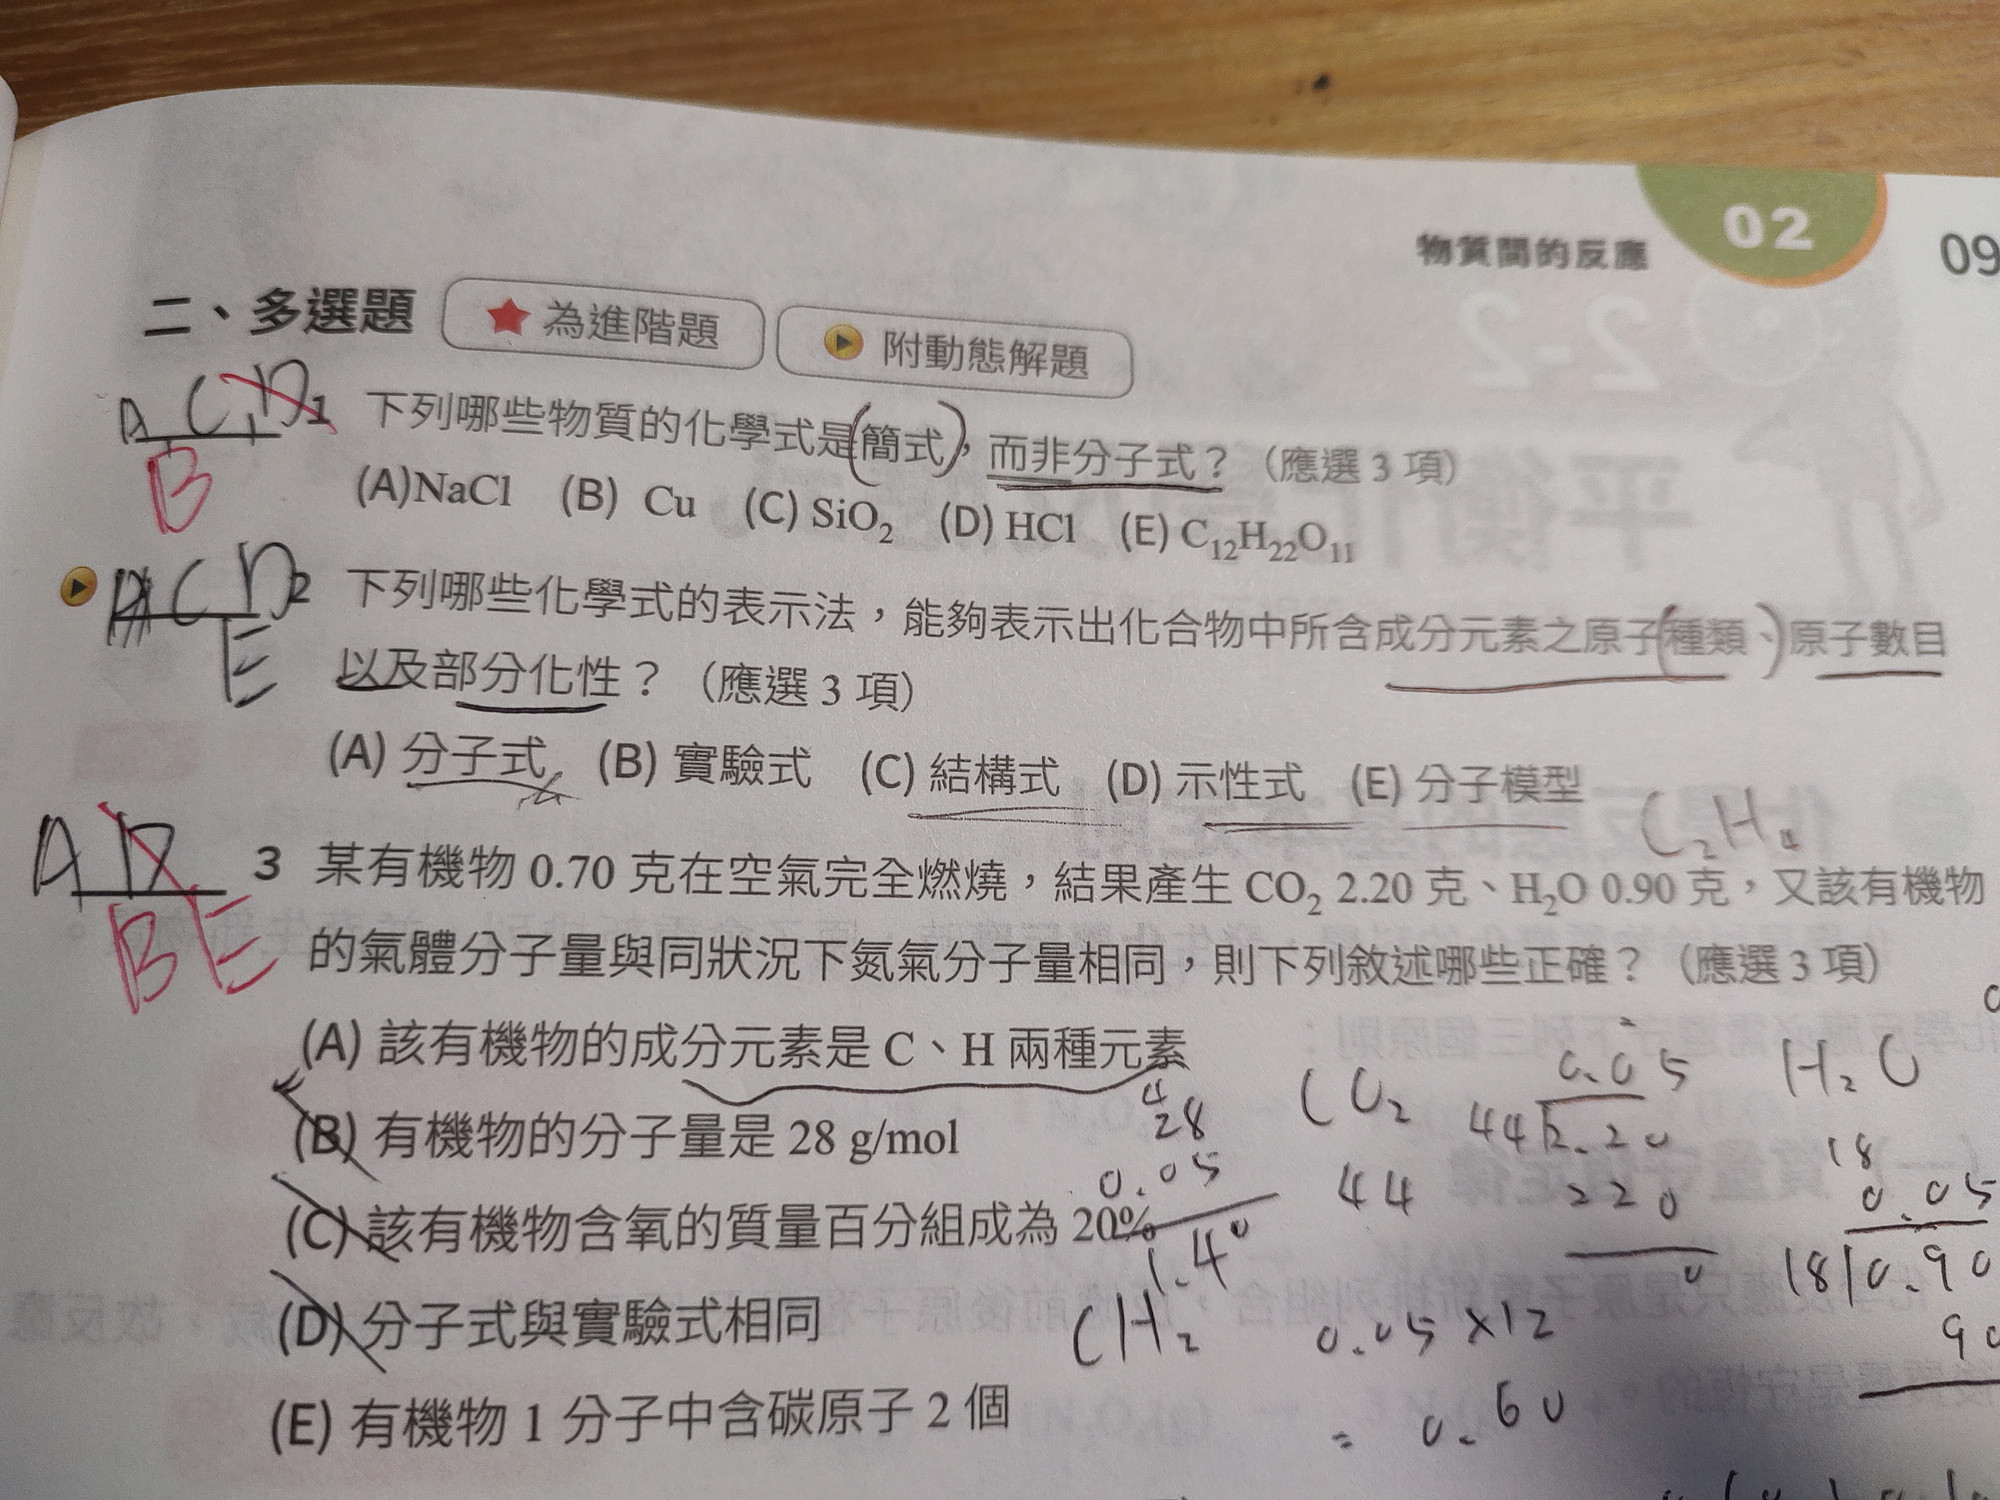 物質間的反應 02 09
二、多選題 ★為進階題 附動態解題
A C D 1 下列哪些物質的化學式是(簡式),而非分子式?(應選 3 項)
B
(A)NaCl (B) Cu (C) SiO₂ (D) HCl (E) C₁₂H₂₂O₁₁
C D 2 下列哪些化學式的表示法,能夠表示出化合物中所含成分元素之原子(種類、)原子數目
E
以及部分化性?(應選 3 項)
(A) 分子式 (B) 實驗式 (C) 結構式 (D) 示性式 (E) 分子模型
C₂H₄
A D 3 某有機物 0.70 克在空氣完全燃燒,結果產生 CO₂ 2.20 克、H₂O 0.90 克,又該有機物
B E
的氣體分子量與同狀況下氮氣分子量相同,則下列敘述哪些正確?(應選 3 項)
(A) 該有機物的成分元素是 C、H 兩種元素
(B) 有機物的分子量是 28 g/mol
(C) 該有機物含氧的質量百分組成為 20%
(D) 分子式與實驗式相同
(E) 有機物 1 分子中含碳原子 2 個
4
28
0.05
1.40
CH₂
CO₂
44
0.05
44 2.20
220
0
0.05×12
= 0.60
H₂O
18
0.05
18 0.90
90